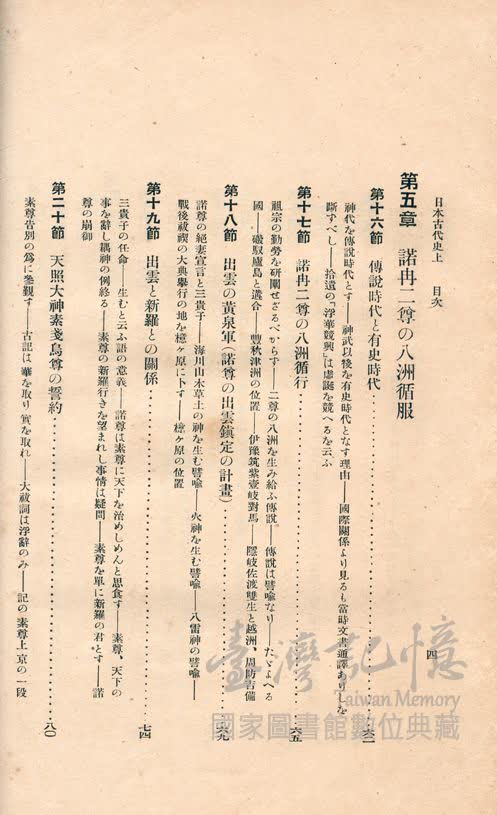 日本古代史上　目次
四
第五章　諾冉二尊の八洲循服
第十六節　傳說時代と有史時代……六一
神代を傳說時代とす——神武以後を有史時代となす理由——國際關係より見るも當時文書通譯ありしを
斷すべし——拾遺の『浮華競興』は虛誕を競へるを云ふ
第十七節　諾冉二尊の八洲循行……六五
祖宗の勤勞を研闡せざるべからす——二尊の八洲を生み給ふ傳說——傳說は譬喩なり——たゞよへる
國——磤馭廬島と遘合——豐秋津洲の位置——伊豫筑紫壹岐對馬——隱岐佐渡雙生と越洲、周防吉備
第十八節　出雲の黃泉軍（諾尊の出雲鎭定の計畫）……六九
諾尊の絕妻宣言と三貴子——海川山木草土の神を生む譬喩——火神を生む譬喩——八雷神の譬喩——
戰後祓禊の大典擧行の地を檍ヶ原に卜す——檍ヶ原の位置
第十九節　出雲と新羅との關係……七四
三貴子の任命——生むと云ふ語の意義——諾尊は素尊に天下を治めしめんと思食す——素尊、天下の
事を辭し耦神の例終る——素尊の新羅行きを望まれし事情は疑問——素尊を單に新羅の君とす——諾
尊の崩御
第二十節　天照大神素戔嗚尊の誓約……八〇
素尊告別の爲に參覲す——古記は華を取り實を取れ——大祓詞は浮辭のみ——記の素尊上京の一段
臺灣記憶
Taiwan Memory
國家圖書館數位典藏